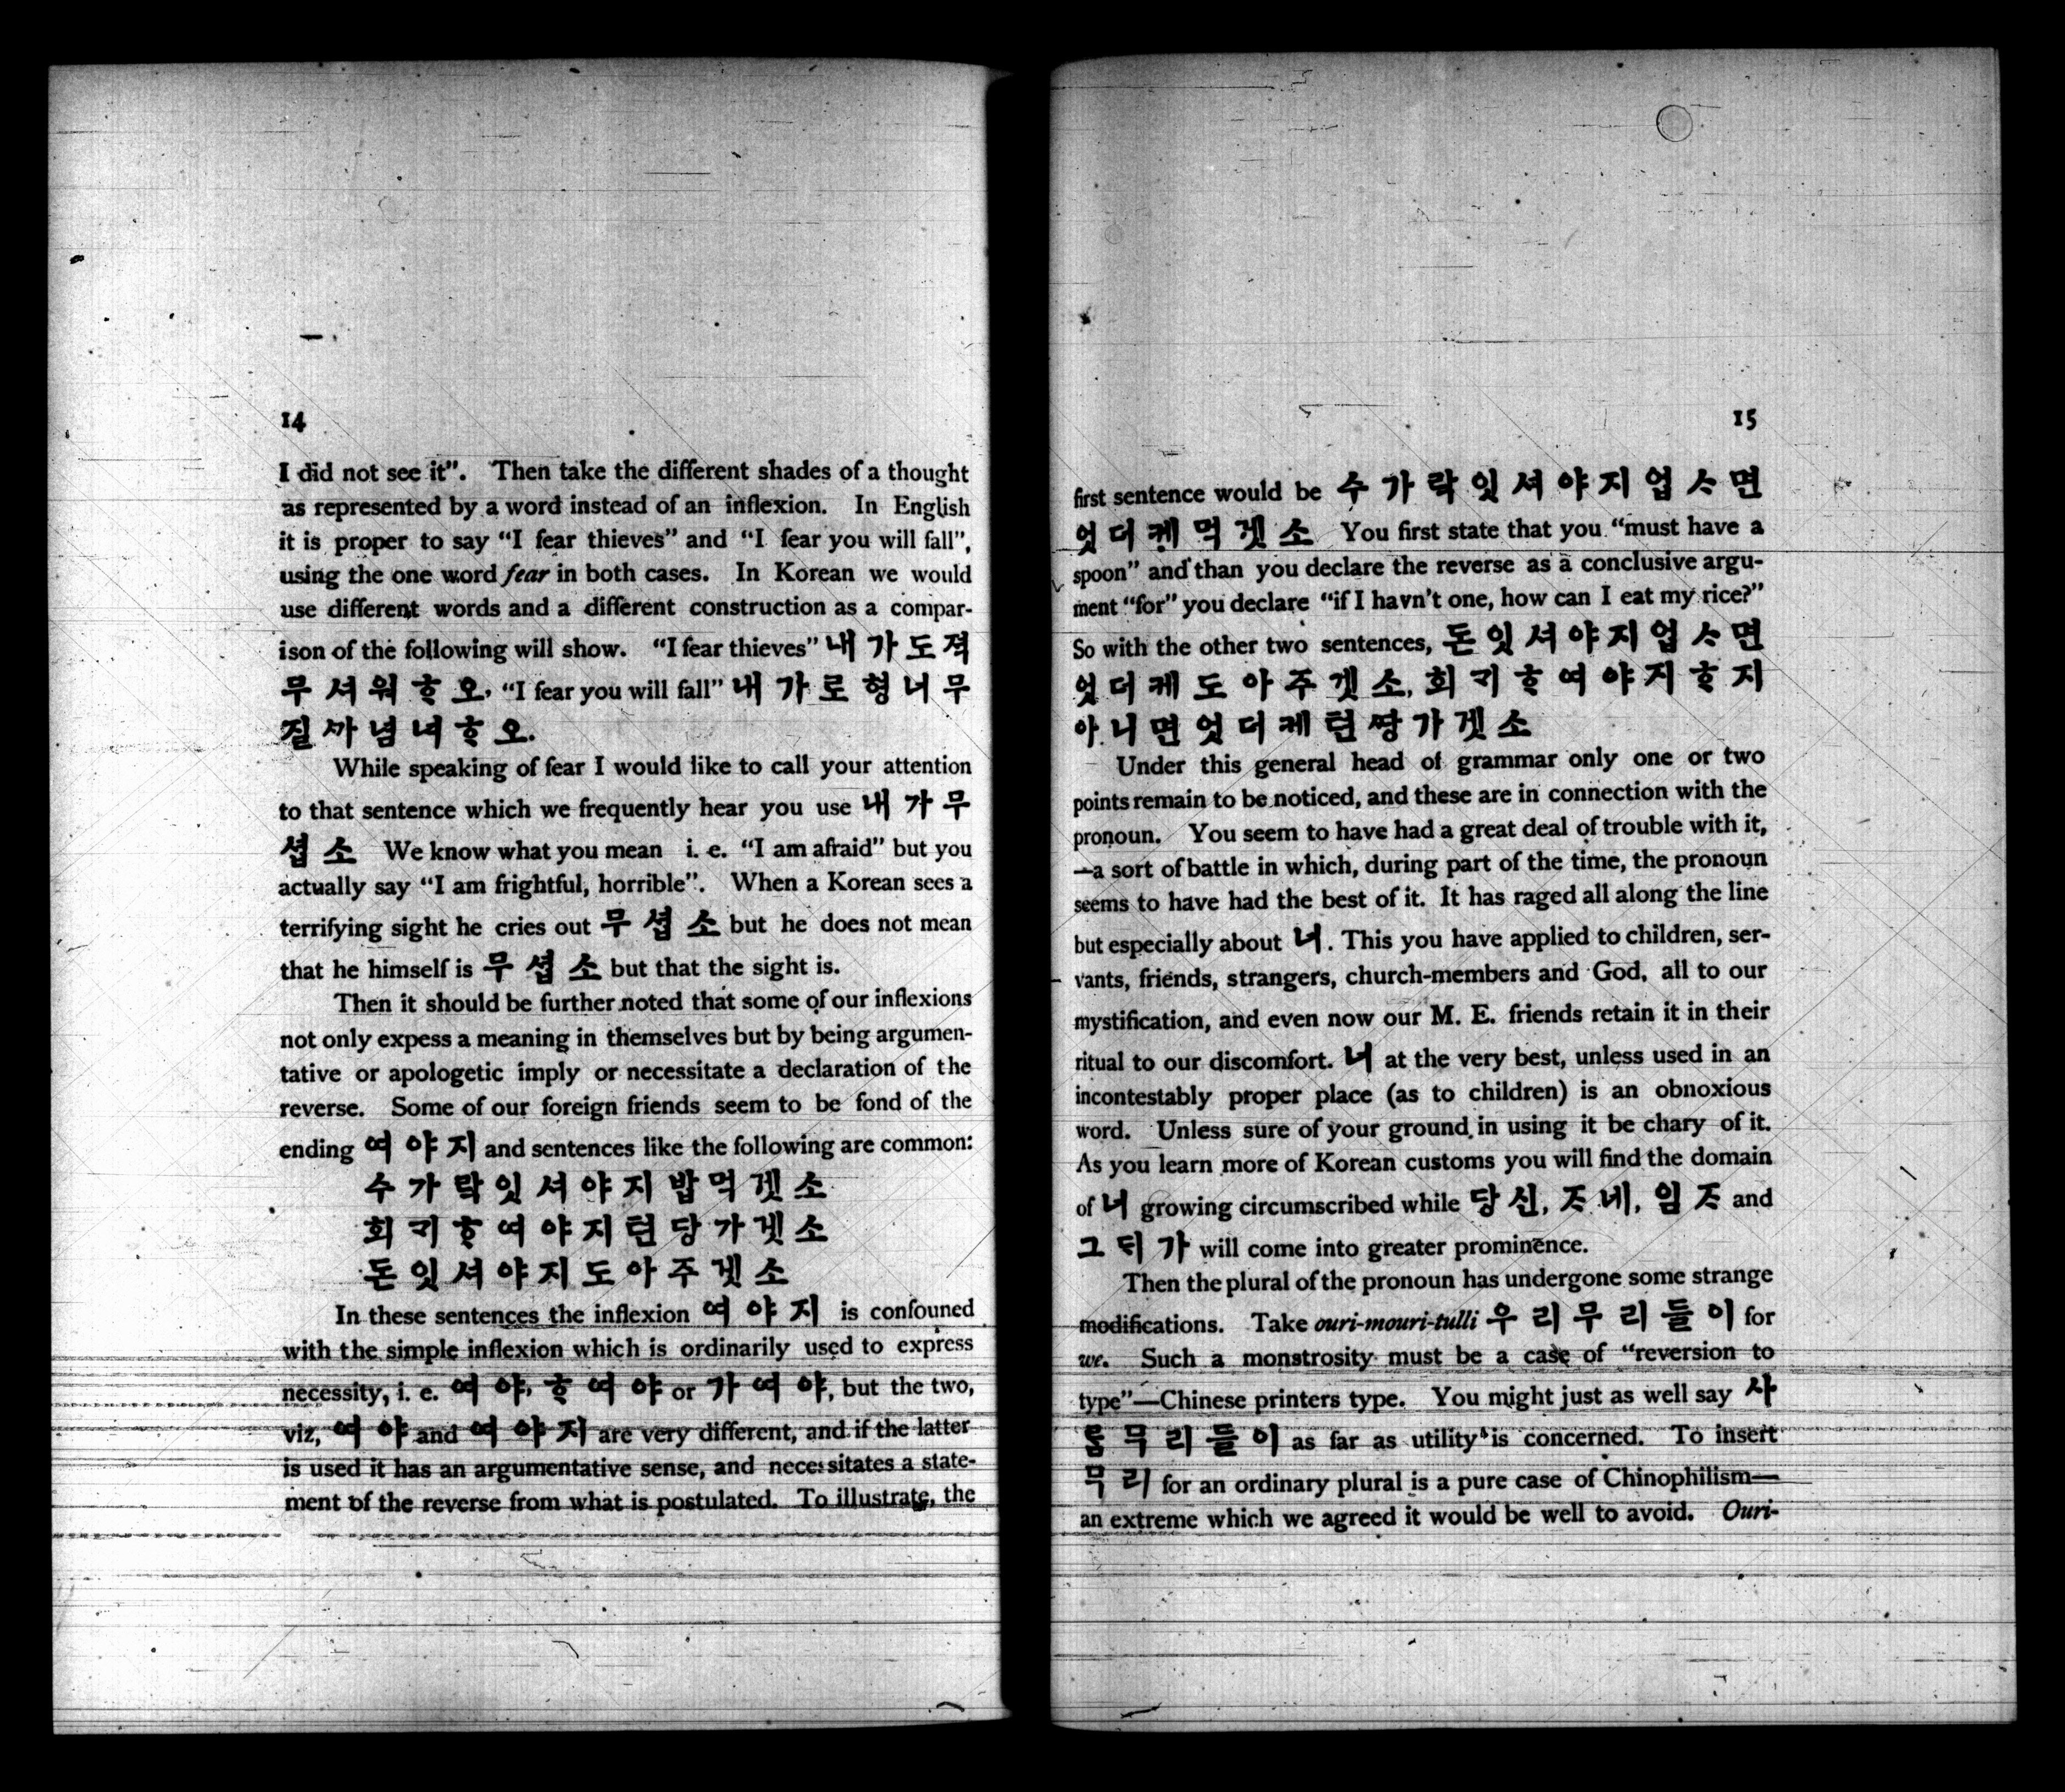 14
I did not see it". Then take the different shades of a thought
as represented by a word instead of an inflexion. In English
it is proper to say "I fear thieves" and "I fear you will fall",
using the one word fear in both cases. In Korean we would
use different words and a different construction as a compar-
ison of the following will show. "I fear thieves" 내 가 도 젹
무 셔 워 ᄒᆞ 오, "I fear you will fall" 내 가 로 형 너 무
질 까 념 녀 ᄒᆞ 오.
While speaking of fear I would like to call your attention
to that sentence which we frequently hear you use 내 가 무
셥 소 We know what you mean i. e. "I am afraid" but you
actually say "I am frightful, horrible". When a Korean sees a
terrifying sight he cries out 무 셥 소 but he does not mean
that he himself is 무 셥 소 but that the sight is.
Then it should be further noted that some of our inflexions
not only expess a meaning in themselves but by being argumen-
tative or apologetic imply or necessitate a declaration of the
reverse. Some of our foreign friends seem to be fond of the
ending 여 야 지 and sentences like the following are common:
수 가 락 잇 셔 야 지 밥 먹 겟 소
회 ᄀᆡ ᄒᆞ 여 야 지 텬 당 가 겟 소
돈 잇 셔 야 지 도 아 주 겟 소
In these sentences the inflexion 여 야 지 is confouned
with the simple inflexion which is ordinarily used to express
necessity, i. e. 여 야, ᄒᆞ 여 야 or 가 여 야, but the two,
viz, 여 야 and 여 야 지 are very different, and if the latter
is used it has an argumentative sense, and necessitates a state-
ment of the reverse from what is postulated. To illustrate, the
15
first sentence would be 수 가 락 잇 셔 야 지 업 ᄉᆞ 면
엇 더 케 먹 겟 소 You first state that you "must have a
spoon" and than you declare the reverse as a conclusive argu-
ment "for" you declare "if I havn't one, how can I eat my rice?"
So with the other two sentences, 돈 잇 셔 야 지 업 ᄉᆞ 면
엇 더 케 도 아 주 겟 소, 회 ᄀᆡ ᄒᆞ 여 야 지 ᄒᆞ 지
아 니 면 엇 더 케 텬 땅 가 겟 소
Under this general head of grammar only one or two
points remain to be noticed, and these are in connection with the
pronoun. You seem to have had a great deal of trouble with it,
—a sort of battle in which, during part of the time, the pronoun
seems to have had the best of it. It has raged all along the line
but especially about 너. This you have applied to children, ser-
vants, friends, strangers, church-members and God, all to our
mystification, and even now our M. E. friends retain it in their
ritual to our discomfort. 너 at the very best, unless used in an
incontestably proper place (as to children) is an obnoxious
word. Unless sure of your ground in using it be chary of it.
As you learn more of Korean customs you will find the domain
of 너 growing circumscribed while 당 신, ᄌᆞ 네, 임 ᄌᆞ and
그 ᄃᆡ 가 will come into greater prominence.
Then the plural of the pronoun has undergone some strange
modifications. Take ouri-mouri-tulli 우 리 무 리 들 이 for
we. Such a monstrosity must be a case of "reversion to
type"—Chinese printers type. You might just as well say 사
ᄅᆞᆷ 무 리 들 이 as far as utility is concerned. To insert
무 리 for an ordinary plural is a pure case of Chinophilism—
an extreme which we agreed it would be well to avoid. Ouri-